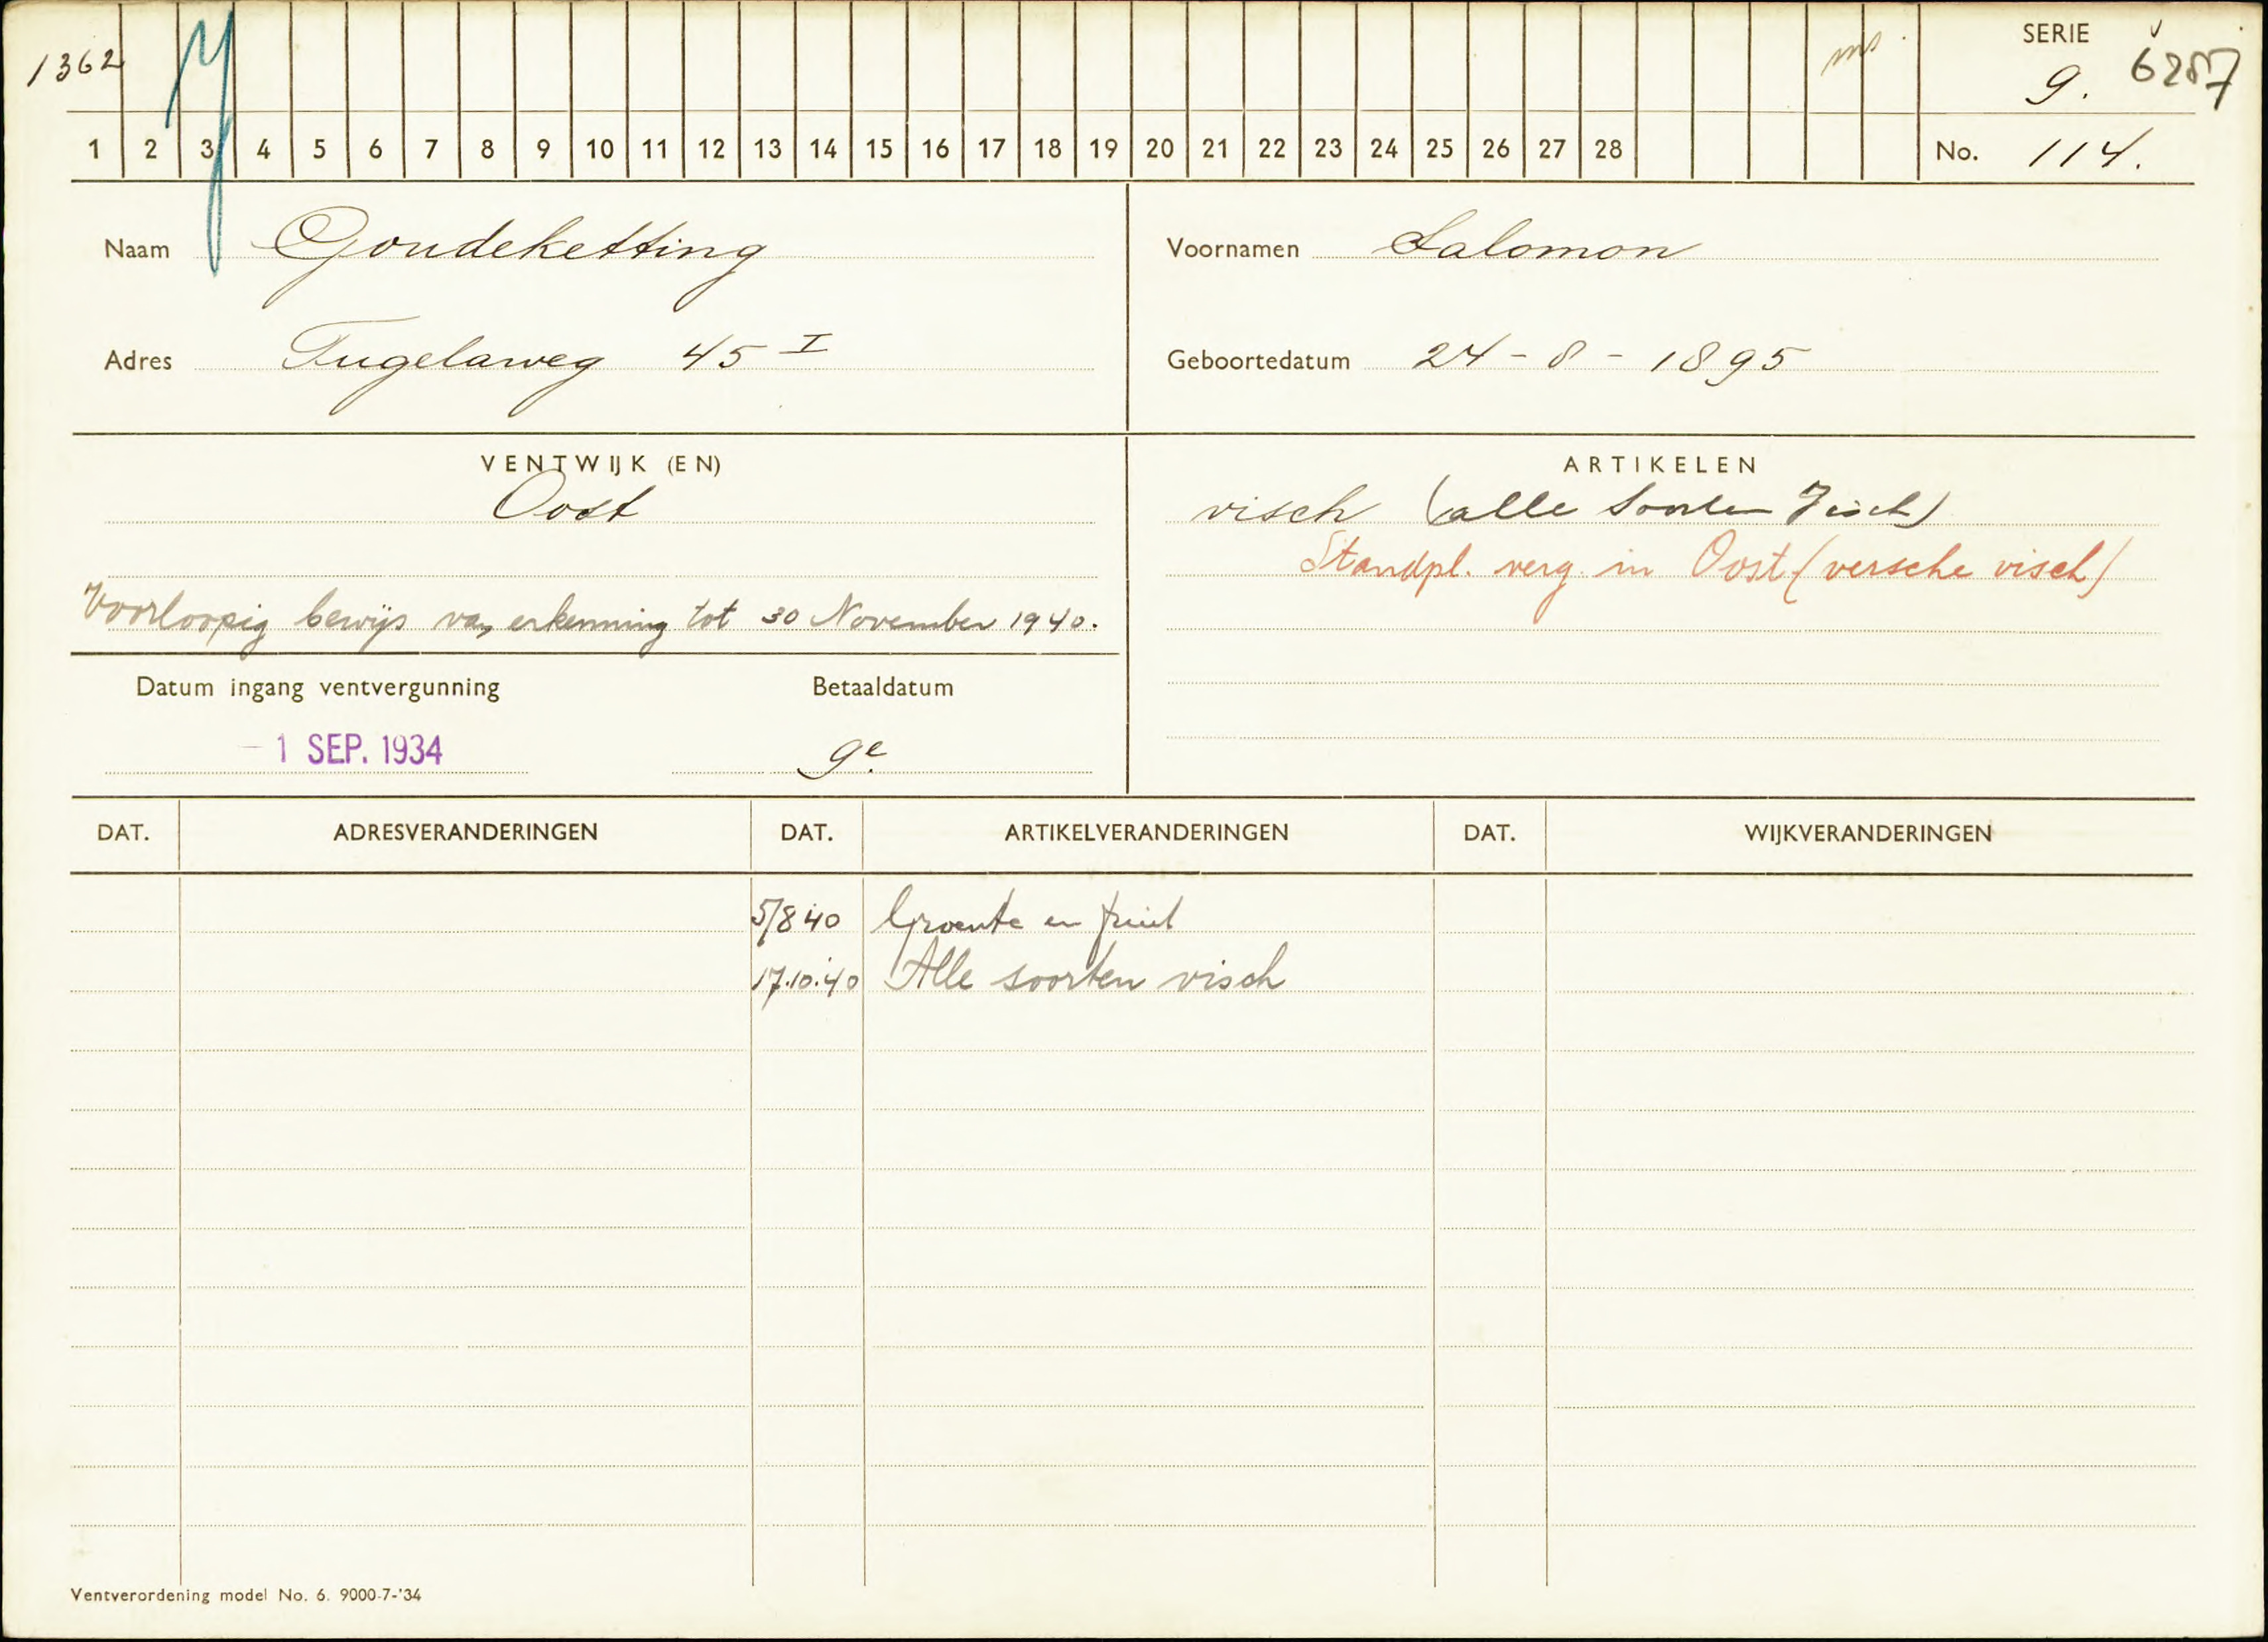 1362 SERIE 9. 6257
1 2 3 4 5 6 7 8 9 10 11 12 13 14 15 16 17 18 19 20 21 22 23 24 25 26 27 28 No. 114.
Naam Goudeketting Voornamen Salomon
Adres Tugelaweg 45 I Geboortedatum 24-8-1895
VENTWIJK (EN) ARTIKELEN
Oost visch (alle soorten visch)
Standpl. verg. in Oost (versche visch)
Voorloopig bewijs van erkenning tot 30 November 1940.
Datum ingang ventvergunning Betaaldatum
- 1 SEP. 1934 9e.
DAT. ADRESVERANDERINGEN DAT. ARTIKELVERANDERINGEN DAT. WIJKVERANDERINGEN
5/8 40 Groente en fruit
17.10.40 Alle soorten visch
Ventverordening model No. 6. 9000-7-'34